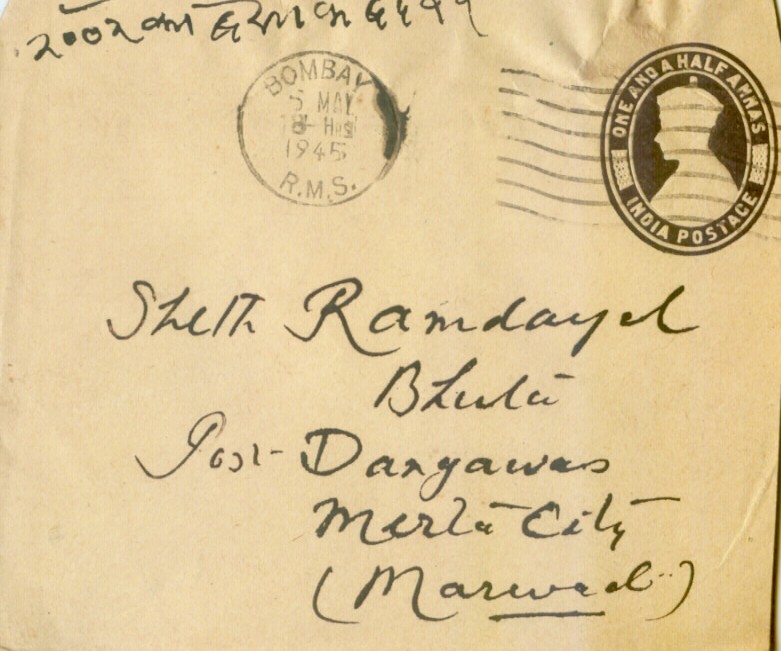 २००२ का
BOMBAY
5 MAY
1945
R.M.S.
ONE AND A HALF ANNAS
INDIA POSTAGE
Sheth Ramdayal
Bhutà
Post- Dangawas
Merta City
(Marwad)